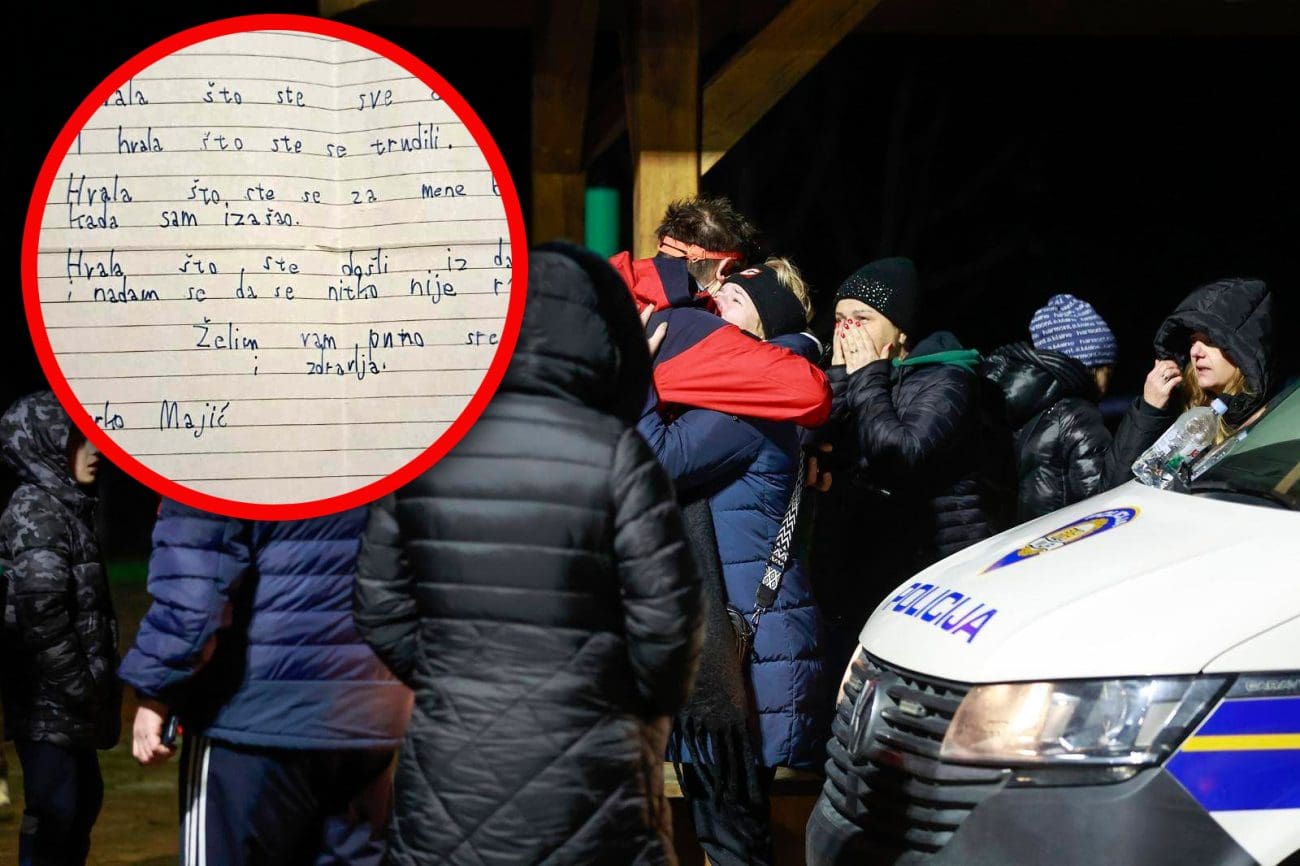 što ste sve
i hvala što ste se trudili.
Hvala što ste se za mene
kada sam izašao.
Hvala što ste došli iz
i nadam se da se nitko nije
Želim vam puno
i zdravlja.
Majić
POLICIJA